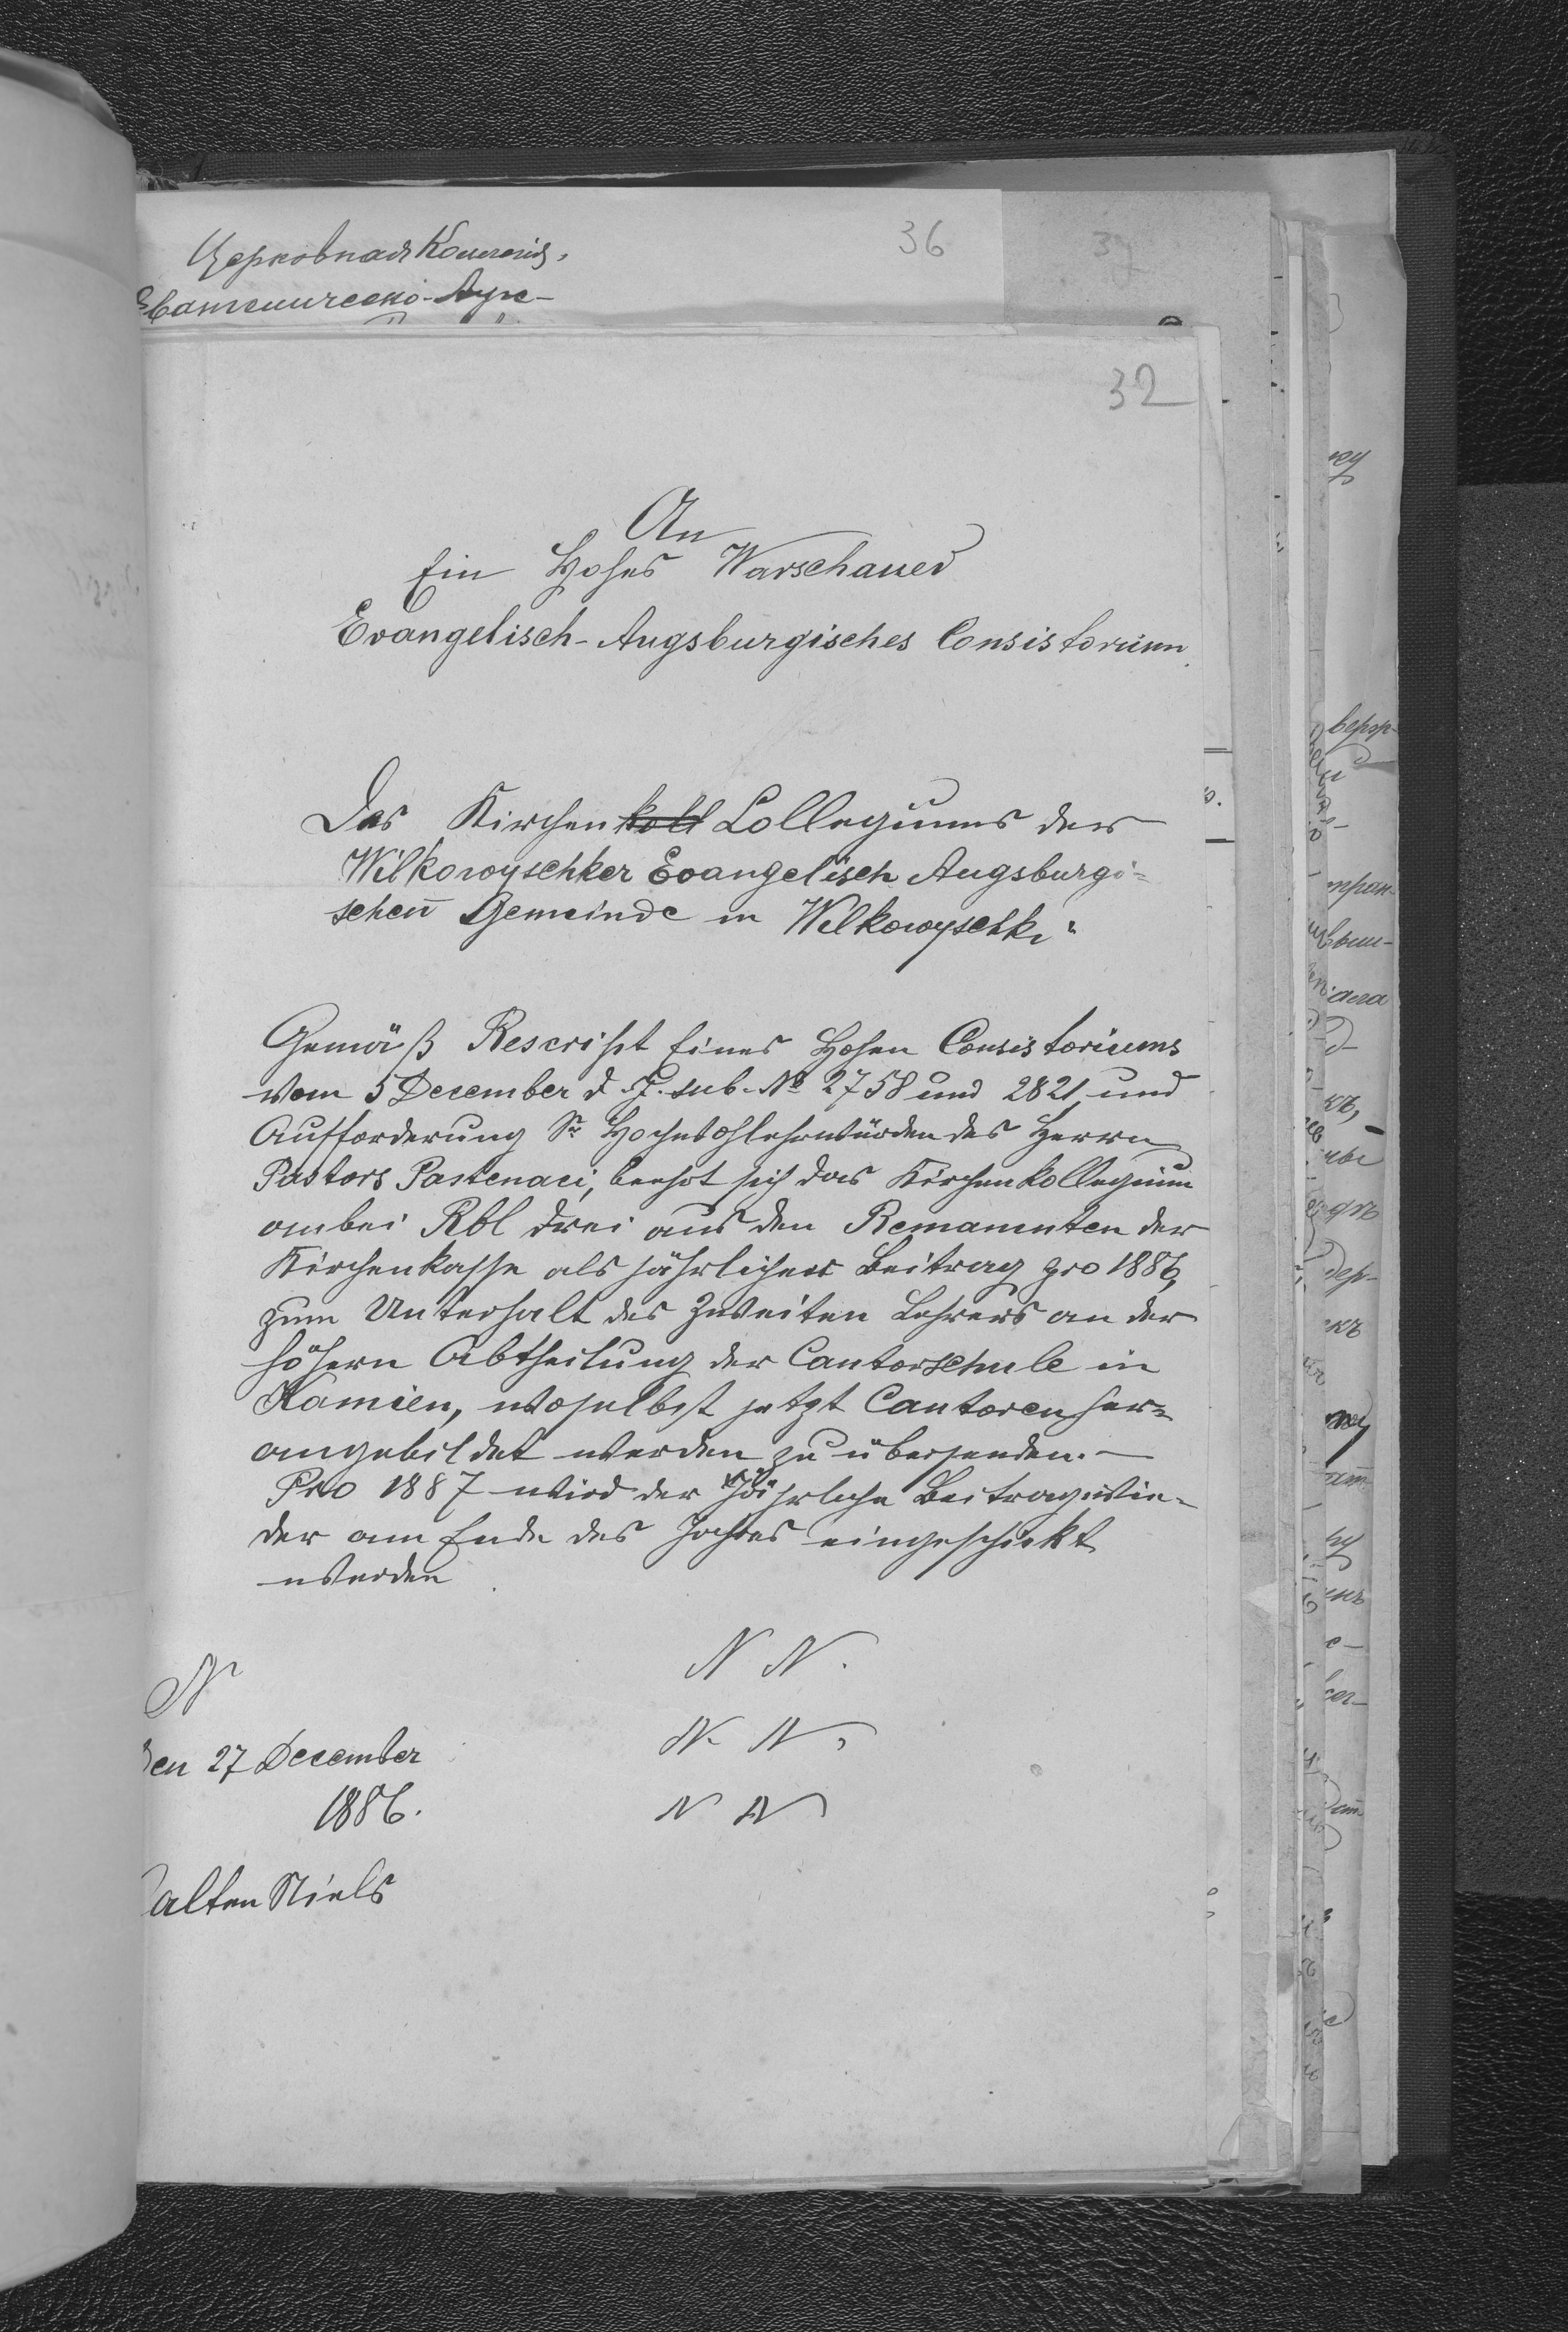 Церковная Коллегія,
Евангелическо-Аугс-
36
37
32
An
Ein Hohes Warschauer
Evangelisch-Augsburgisches Consistorium
Des Kirchenkoll Collegiums der
Wilkowyschker Evangelisch Augsburgi-
schen Gemeinde in Wilkowyschki:
Gemäß Rescript Eines Hohen Consistoriums
vom 5 December d. J. sub. No 2758 und 2821, und
Aufforderung Sr Hochwohlehrwürden des Herrn
Pastors Pastenaci, beehrt sich das Kirchenkollegium
anbei Rbl drei aus den Remanenten der
Kirchenkasse als jährlicher Beitrag pro 1886,
zum Unterhalt des zweiten Lehrers an der
höhern Abtheilung der Cantorschule in
Kamien, woselbst jetzt Cantoren her-
angebildet werden zu übersenden. —
Pro 1887 wird der Jährliche Beitrag wie-
der am Ende des Jahres eingeschickt
werden
N
N N.
den 27 December
N. N.
1886.
N N
alten Stiels